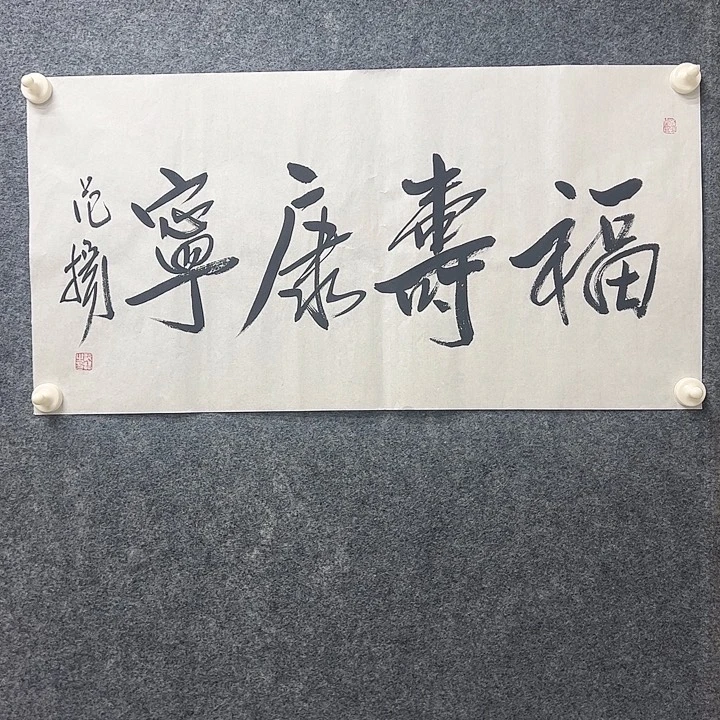 福壽康寧
范揚